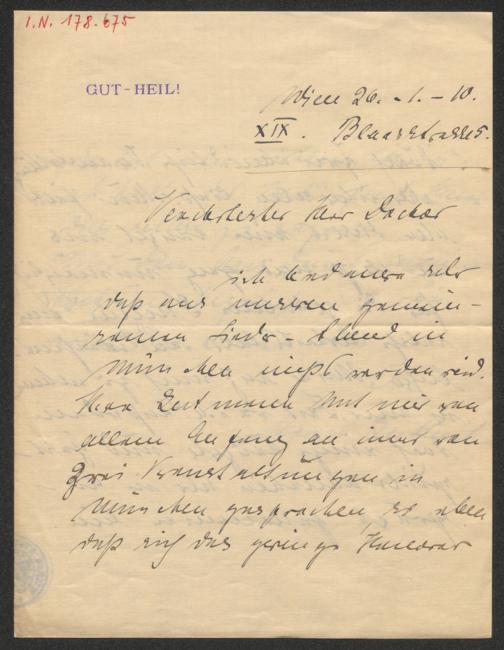 I.N. 178.675
GUT-HEIL!
Wien 26. - 1. - 10.
XIX. Blaasstrasse 5.
Verehrtester Herr Doctor
ich bedauere sehr
daß aus unserem gemein-
samen Lieder-Abend in
München nichts werden wird.
Herr Gutmann hat mir von
allem Anfang an immer von
zwei Veranstaltungen in
München gesprochen, so aber
daß sich das geringe Honorar